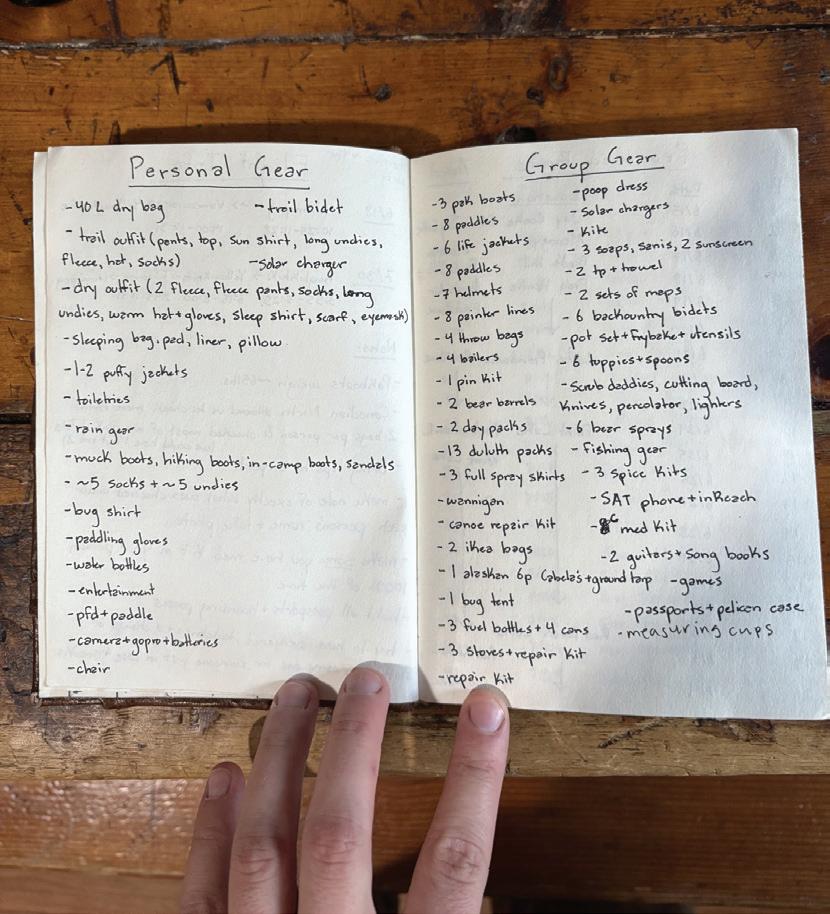 Personal Gear
-40 L dry bag
-trail bidet
-trail outfit (pants, top, sun shirt, long undies,
fleece, hat, socks)
-solar charger
-dry outfit (2 fleece, fleece pants, socks, long
undies, warm hat+gloves, sleep shirt, scarf, eyemask)
-sleeping bag, pad, liner, pillow
-1-2 puffy jackets
-toiletries
-rain gear
-muck boots, hiking boots, in-camp boots, sandals
-~5 socks + ~5 undies
-bug shirt
-paddling gloves
-water bottles
-entertainment
-pfd+paddle
-camera+gopro+batteries
-chair
Group Gear
-3 pak boats
-8 paddles
-6 life jackets
-8 paddles
-7 helmets
-8 painter lines
-4 throw bags
-4 bailers
-1 pin kit
-2 bear barrels
-2 day packs
-13 duluth packs
-3 full spray skirts
-wannigan
-canoe repair kit
-2 ikea bags
-1 alaskan 6p Cabela's+ground tarp
-1 bug tent
-3 fuel bottles+4 cans
-3 stoves+repair kit
-repair kit
-poop dress
-solar chargers
-kite
-3 soaps, sanis, 2 sunscreen
-2 tp+trowel
-2 sets of maps
-6 backountry bidets
-pot set+frybake+utensils
-6 tuppies+spoons
-Scrub daddies, cutting board,
knives, percolator, lighters
-6 bear sprays
-fishing gear
-3 spice kits
-SAT phone+inReach
med kit
-2 guitars+song books
-games
-passports+pelican case
-measuring cups